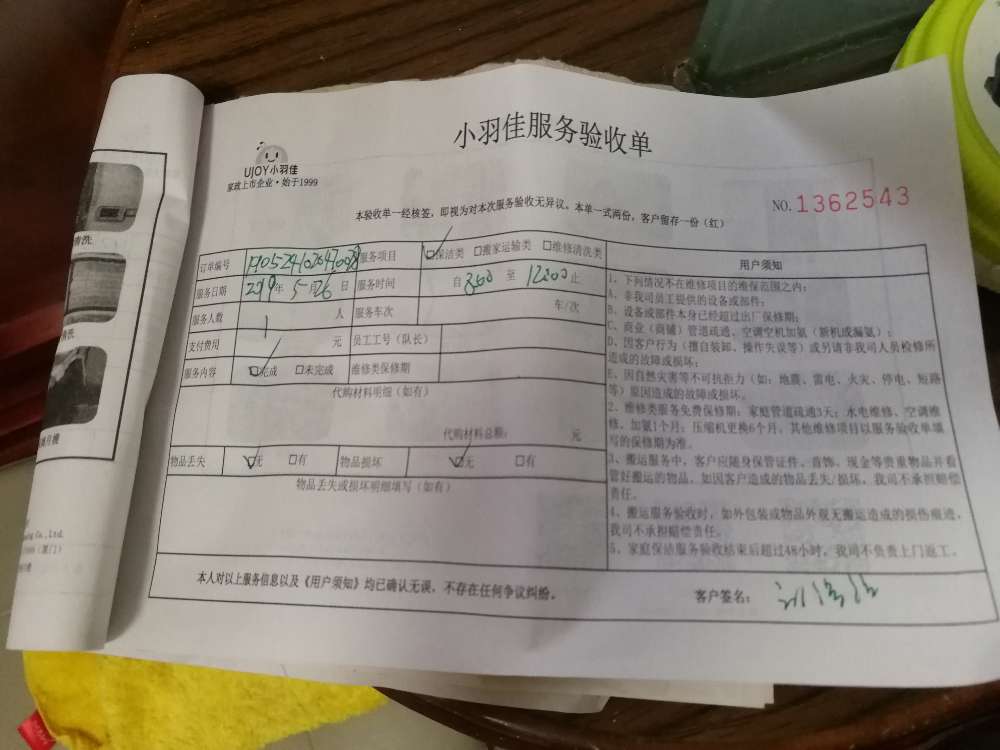 小羽佳服务验收单
UJOY小羽佳
家政上市企业·始于1999
NO.1362543
本验收单一经核签，即视为对本次服务验收无异议。本单一式两份，客户留存一份（红）
订单编号 服务项目 保洁类 搬家运输类 维修清洗类
服务日期 2019年5月26日 服务时间 自 800 至 1200 止
服务人数 1 人 服务车次 车/次
支付费用 元 员工工号（队长）
服务内容 完成 未完成 维修类保修期
代购材料明细（如有）
代购材料总额： 元
物品丢失 无 有 物品损坏 无 有
物品丢失或损坏明细填写（如有）
用户须知
1、下列情况不在维修项目的维保范围之内：
A、非我司员工提供的设备或部件；
B、设备或部件本身已经超过出厂保修期；
C、商业（商铺）管道疏通、空调空机加氨（新机或漏氨）；
D、因客户行为（擅自装卸、操作失误等）或另请非我司人员检修所
造成的故障或损坏；
E、因自然灾害等不可抗拒力（如：地震、雷电、火灾、停电、短路
等）原因造成的故障或损坏。
2、维修类服务免费保修期：家庭管道疏通3天；水电维修、空调维
修、加氨1个月；压缩机更换6个月，其他维修项目以服务验收单填
写的保修期为准。
3、搬运服务中，客户应随身保管证件、首饰、现金等贵重物品并看
管好搬运的物品，如因客户造成的物品丢失/损坏，我司不承担赔偿
责任。
4、搬运服务验收时，如外包装或物品外观无搬运造成的损伤痕迹，
我司不承担赔偿责任。
5、家庭保洁服务验收结束后超过48小时，我司不负责上门返工。
本人对以上服务信息以及《用户须知》均已确认无误，不存在任何争议纠纷。
客户签名：
清洗
Co.,Ltd.
（厦门）